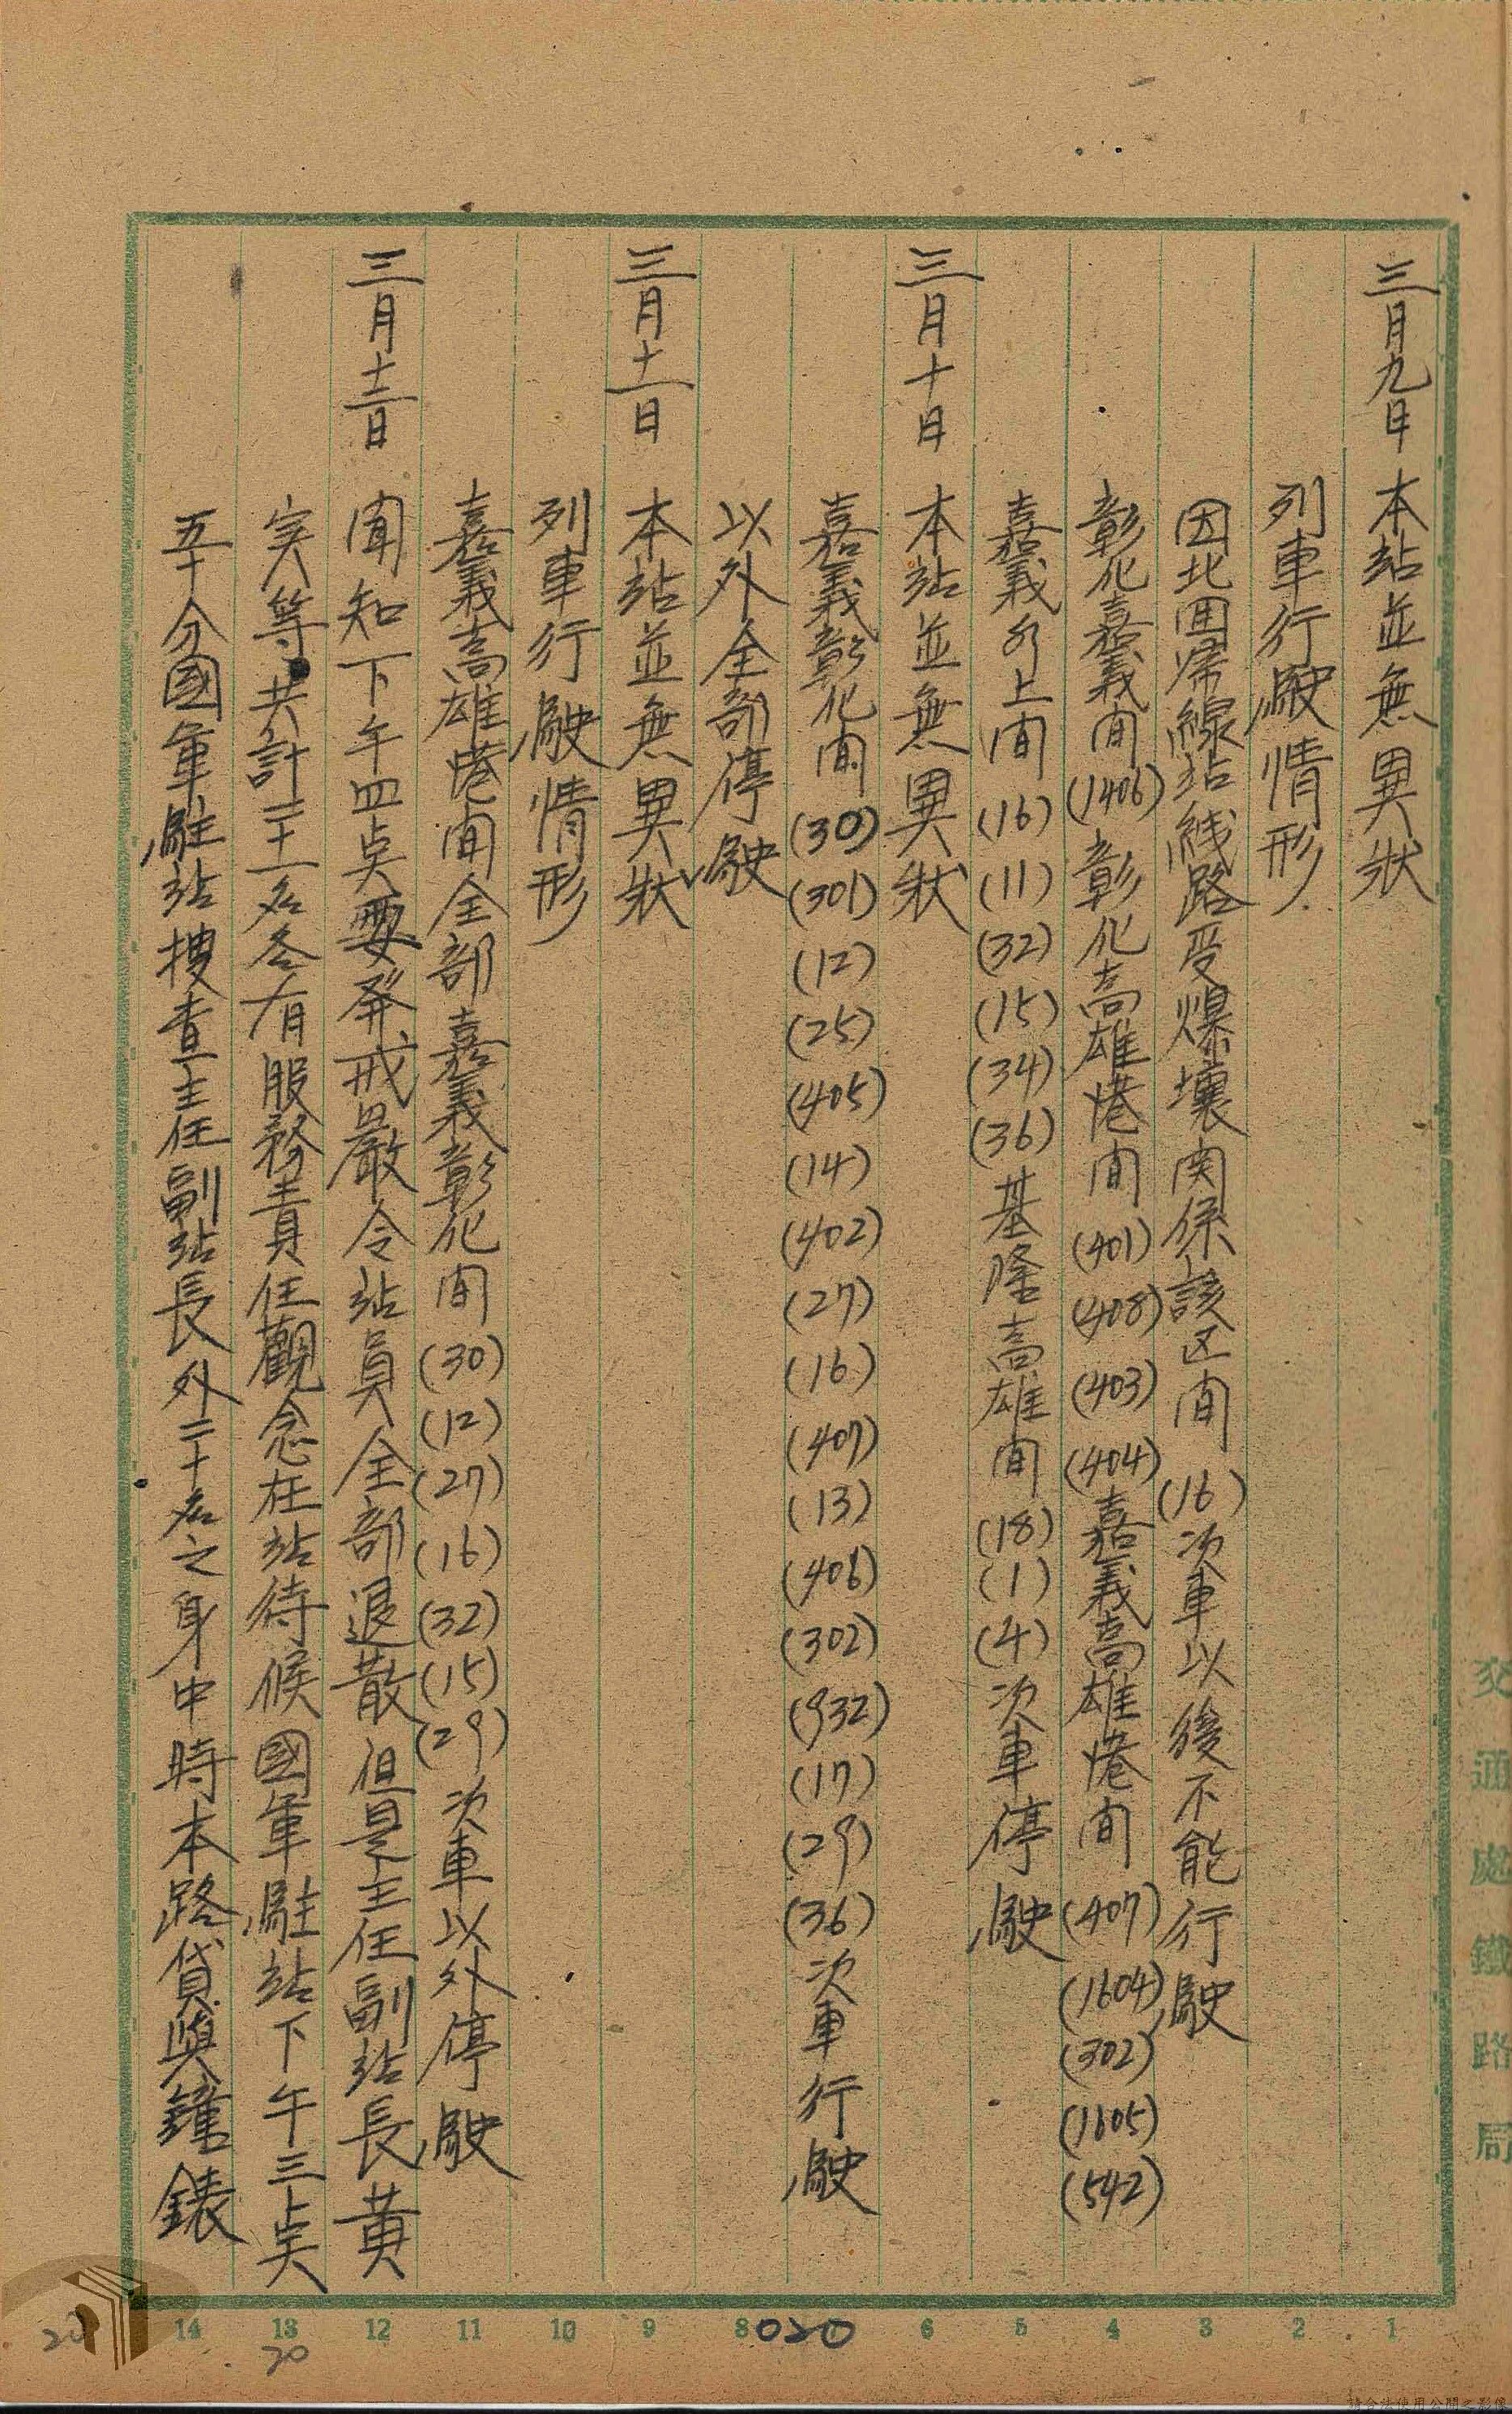 三月九日 本站並無異狀
列車行駛情形
因北囬帰線站綫路受爆壞関係該区间(16)次車以後不能行駛
彰化嘉義间(1406)彰化高雄港间(401)(408)(403)(404)嘉義高雄港间(407)(1604)(302)(1605)(542)
嘉義水上间(16)(11)(32)(15)(34)(36)基隆高雄间(18)(1)(4)次車停駛
三月十日 本站並無異狀
嘉義彰化间(30)(301)(12)(25)(405)(14)(402)(27)(16)(407)(13)(406)(302)(932)(17)(29)(36)次車行駛
以外全部停駛
三月十一日 本站並無異狀
列車行駛情形
嘉義高雄港间全部嘉義彰化间(30)(12)(27)(16)(32)(15)(29)次車以外停駛
三月十二日 聞知下午四点要発戒嚴令站員全部退散但是主任副站長黄
実等共計二十一名冬有服務責任觀念在站待候國軍駐站下午三点
五十分國軍駐站搜查主任副站長外二十名之身中時本路貸與鐘錶
交通處鐵路局
1 2 3 4 5 6 8 9 10 11 12 13 14
020
20
20
請合法使用公開之影像